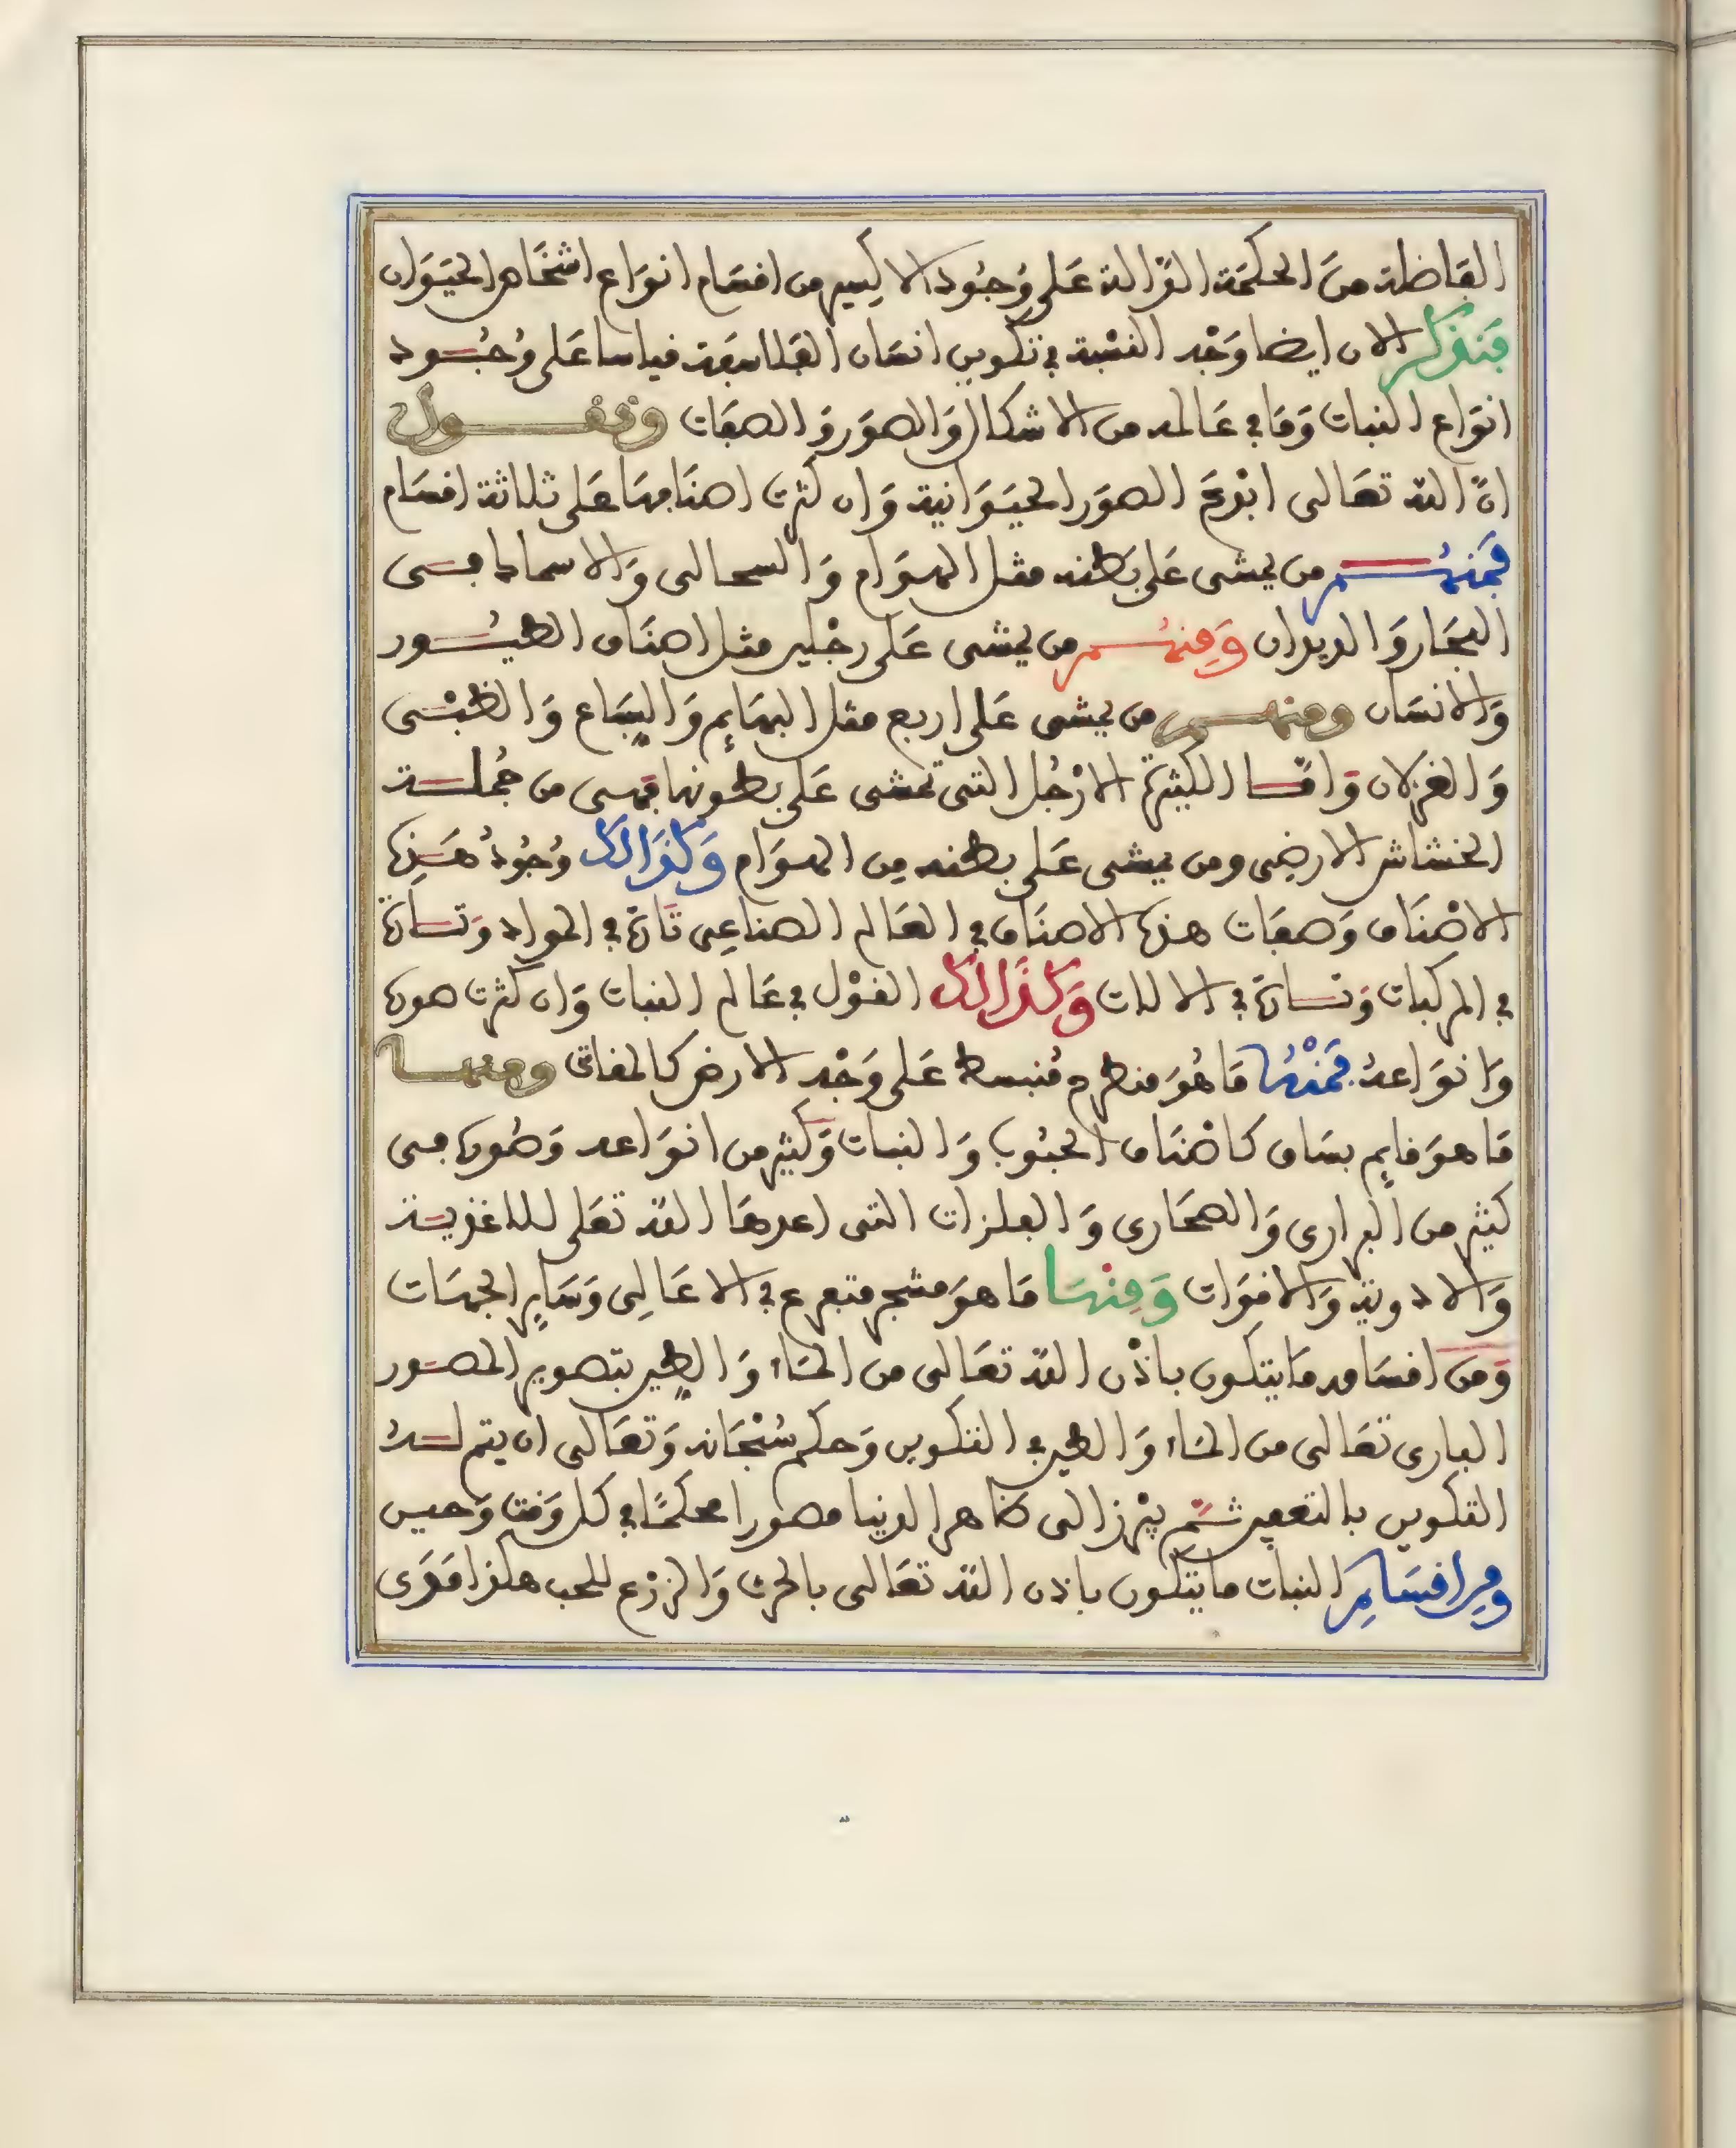 الفاضلة من الحكمة الدّالة على وُجُود الاكسير من اقسام انواع اشخاص الحيَوَان
فنذكر الان ايضا وَجْه النسْبة في تكوين انسان الفلاسفة قياسا على وُجُود
انوَاع النبات وَمَا في عَالمه من الاشكال وَالصوَر وَالصفَات ونقول
انّ الله تعَالى ابْدَعَ الصوَر الحيَوَانية وَان كثرت اصنَافهَا عَلى ثلاثة اقسَام
فمنهُم من يمشى عَلى بَطنه مثل الهوَام وَالسحالى وَالاسماك فى
البحَار وَالديدان وَمِنهُم من يمشى عَلى رجْلين مثل اصنَاف الطيُور
وَالانسَان ومنهم من يمشى عَلى اربع مثل البهَايم وَالسِبَاع وَالظبْى
وَالغزلان وَامّا الكثيرَة الارْجُل التى تمشى عَلى بطونها فهى من جُملة
الخشاش الارضِى ومن يمشى عَلى بطنه مِن الهوَام وَكذَالك وُجُودُ هَذِه
الاصْنَاف وَصفَات هذه الاصنَاف في العَالم الصناعِى تَارَة في المواد وَتارَة
في المركبات وَتارَة في الالات وَكذَالك القوْل في عَالم النبات وَان كثرت صوره
وَانوَاعهُ فمنْهَا مَا هُوَ منطرح مُنبسط عَلى وَجْه الارض كالمقاتى ومنها
مَا هوَ قايم بسَاق كاصْنَاف الحبُوب وَالنبات وَكثير من انوَاعه وَصُوره فى
كثير من البرارى وَالصحَارى وَالفلزات التى اعدهَا الله تعَلى للاغذية
وَالادوية وَالاقوَات وَمِنْهَا مَا هوَ مشجر متفرع في الاعَالِى وَسَاير الجهَات
وَمن اقسَامه مَا يتكون باذْن الله تعَالى من المَاء وَالطين بتصوير المصَور
البارى تعَالى من المَاء وَالطين في التكوين وَحكم سُبْحَانه وَتعَالى ان يتم لهُ
التكوين بالتعفين ثمّ يبْرز الى ظاهر الدنيا مصورا محكمًا في كل وَقت وَحين
ومِن اقسَامِه النبات ما يتكون باذن الله تعَالى بالحرث وَالزرْع للحب هكذا مَدَى